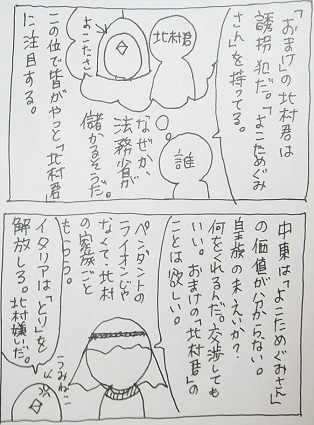 「おまけ」の北村君は
誘拐犯だ。「よこためぐみ
さん」を持ってる。
北村君
よこたさん
誰
なぜか、
法務省が
儲かるそうだ。
この位で皆がやっと「北村君
に注目する。
中東は「よこためぐみさん」
の価値が分からない。
皇族のまえいか?
何をくれるんだ。交渉しても
いい。おまけの「北村君」の
ことは欲しい。
ペンダントの
ライオンじゃ
なくて、北村
の家族ごと
もらう。
イタリアは「とり」を
解放しろ。北村嫌いだ。
うみねこ